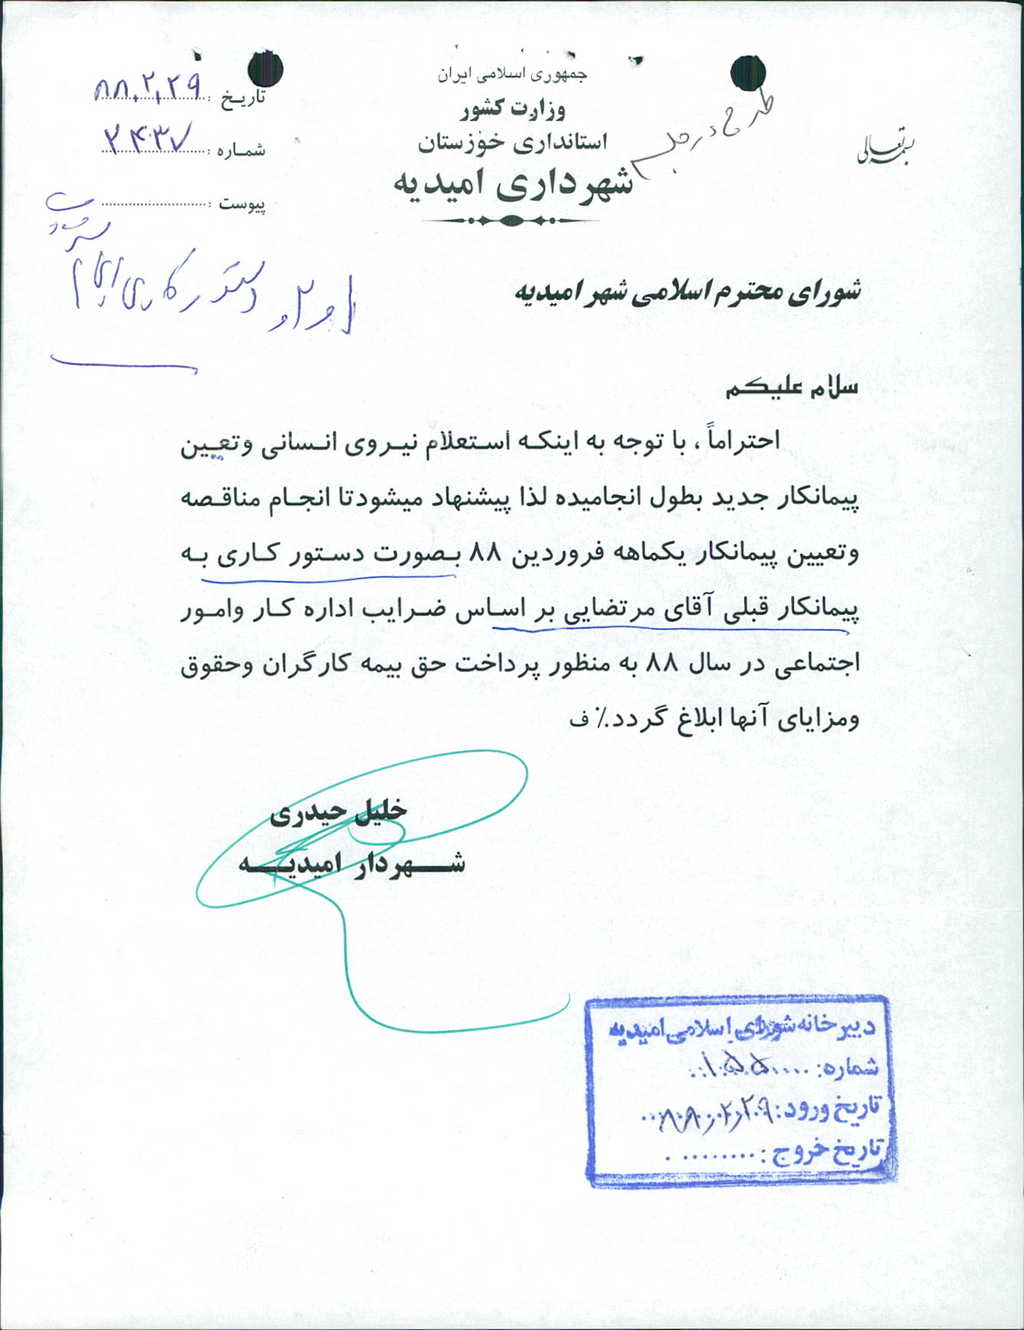 بسمه تعالی
جمهوری اسلامی ایران
وزارت کشور
استانداری خوزستان
شهرداری امیدیه
تاریخ : ۸۸,۲,۲۹
شماره : ۲۴۳۷
پیوست :
طرح در جلسه
شورای محترم اسلامی شهر امیدیه
سلام علیکم
احتراماً ، با توجه به اینکه استعلام نیروی انسانی وتعیین
پیمانکار جدید بطول انجامیده لذا پیشنهاد میشودتا انجام مناقصه
وتعیین پیمانکار یکماهه فروردین ۸۸ بصورت دستور کاری به
پیمانکار قبلی آقای مرتضایی بر اساس ضرایب اداره کار وامور
اجتماعی در سال ۸۸ به منظور پرداخت حق بیمه کارگران وحقوق
ومزایای آنها ابلاغ گردد.٪ ف
خلیل حیدری
شهردار امیدیه
دبیرخانه شورای اسلامی امیدیه
شماره: ۱۵۵
تاریخ ورود: ۸۸,۲,۲۹
تاریخ خروج :